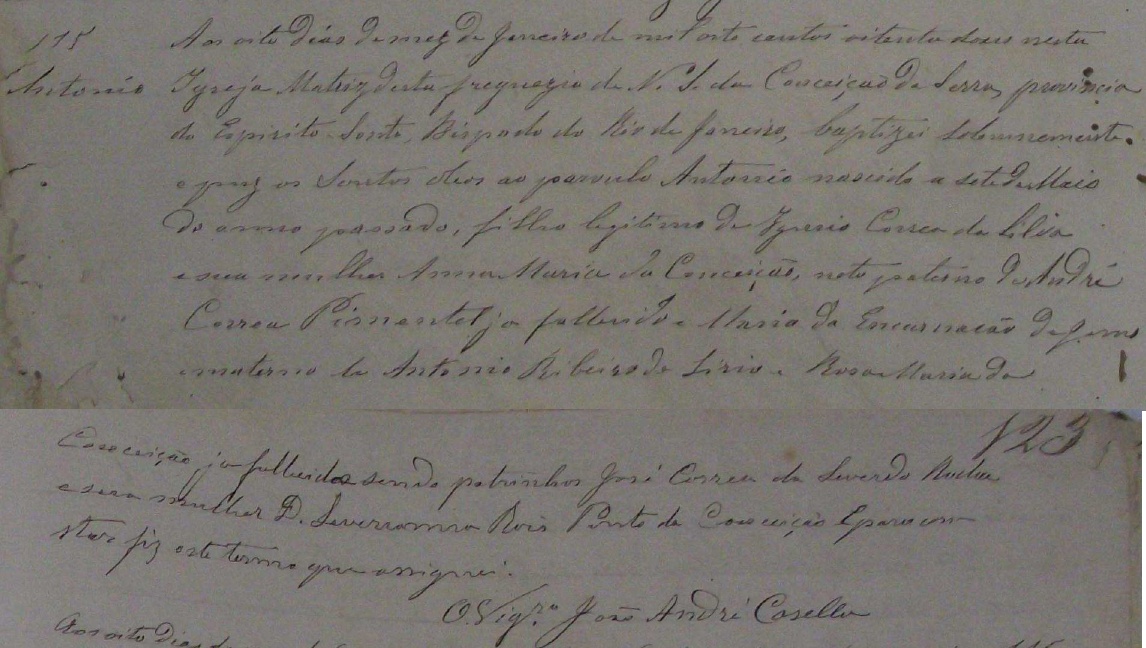 115
Aos oito dias do mez de Janeiro de mil oito centos oitenta dous nesta
Antonio
Igreja Matriz desta freguezia de N. S. da Conceição da Serra, provincia
do Espirito Santo, Bispado do Rio de Janeiro, baptizei solemnemente
e puz os Santos oleos ao parvulo Antonio nascido a sete de Maio
do anno passado, filho legitimo de Ignacio Correa da Silva
e sua mulher Anna Maria da Conceição, neto paterno de André
Correa Pimentel ja fallecido e Maria da Encarnação de Jesus
e materno de Antonio Ribeiro de Lirio e Rosa Maria da
123
Conceição ja fallecidos sendo padrinhos José Correa da
e sua mulher D. Ponto da Conceição E para con
star fiz este termo que assignei.
O Vigr.º João André Casella
Aos oito Dias